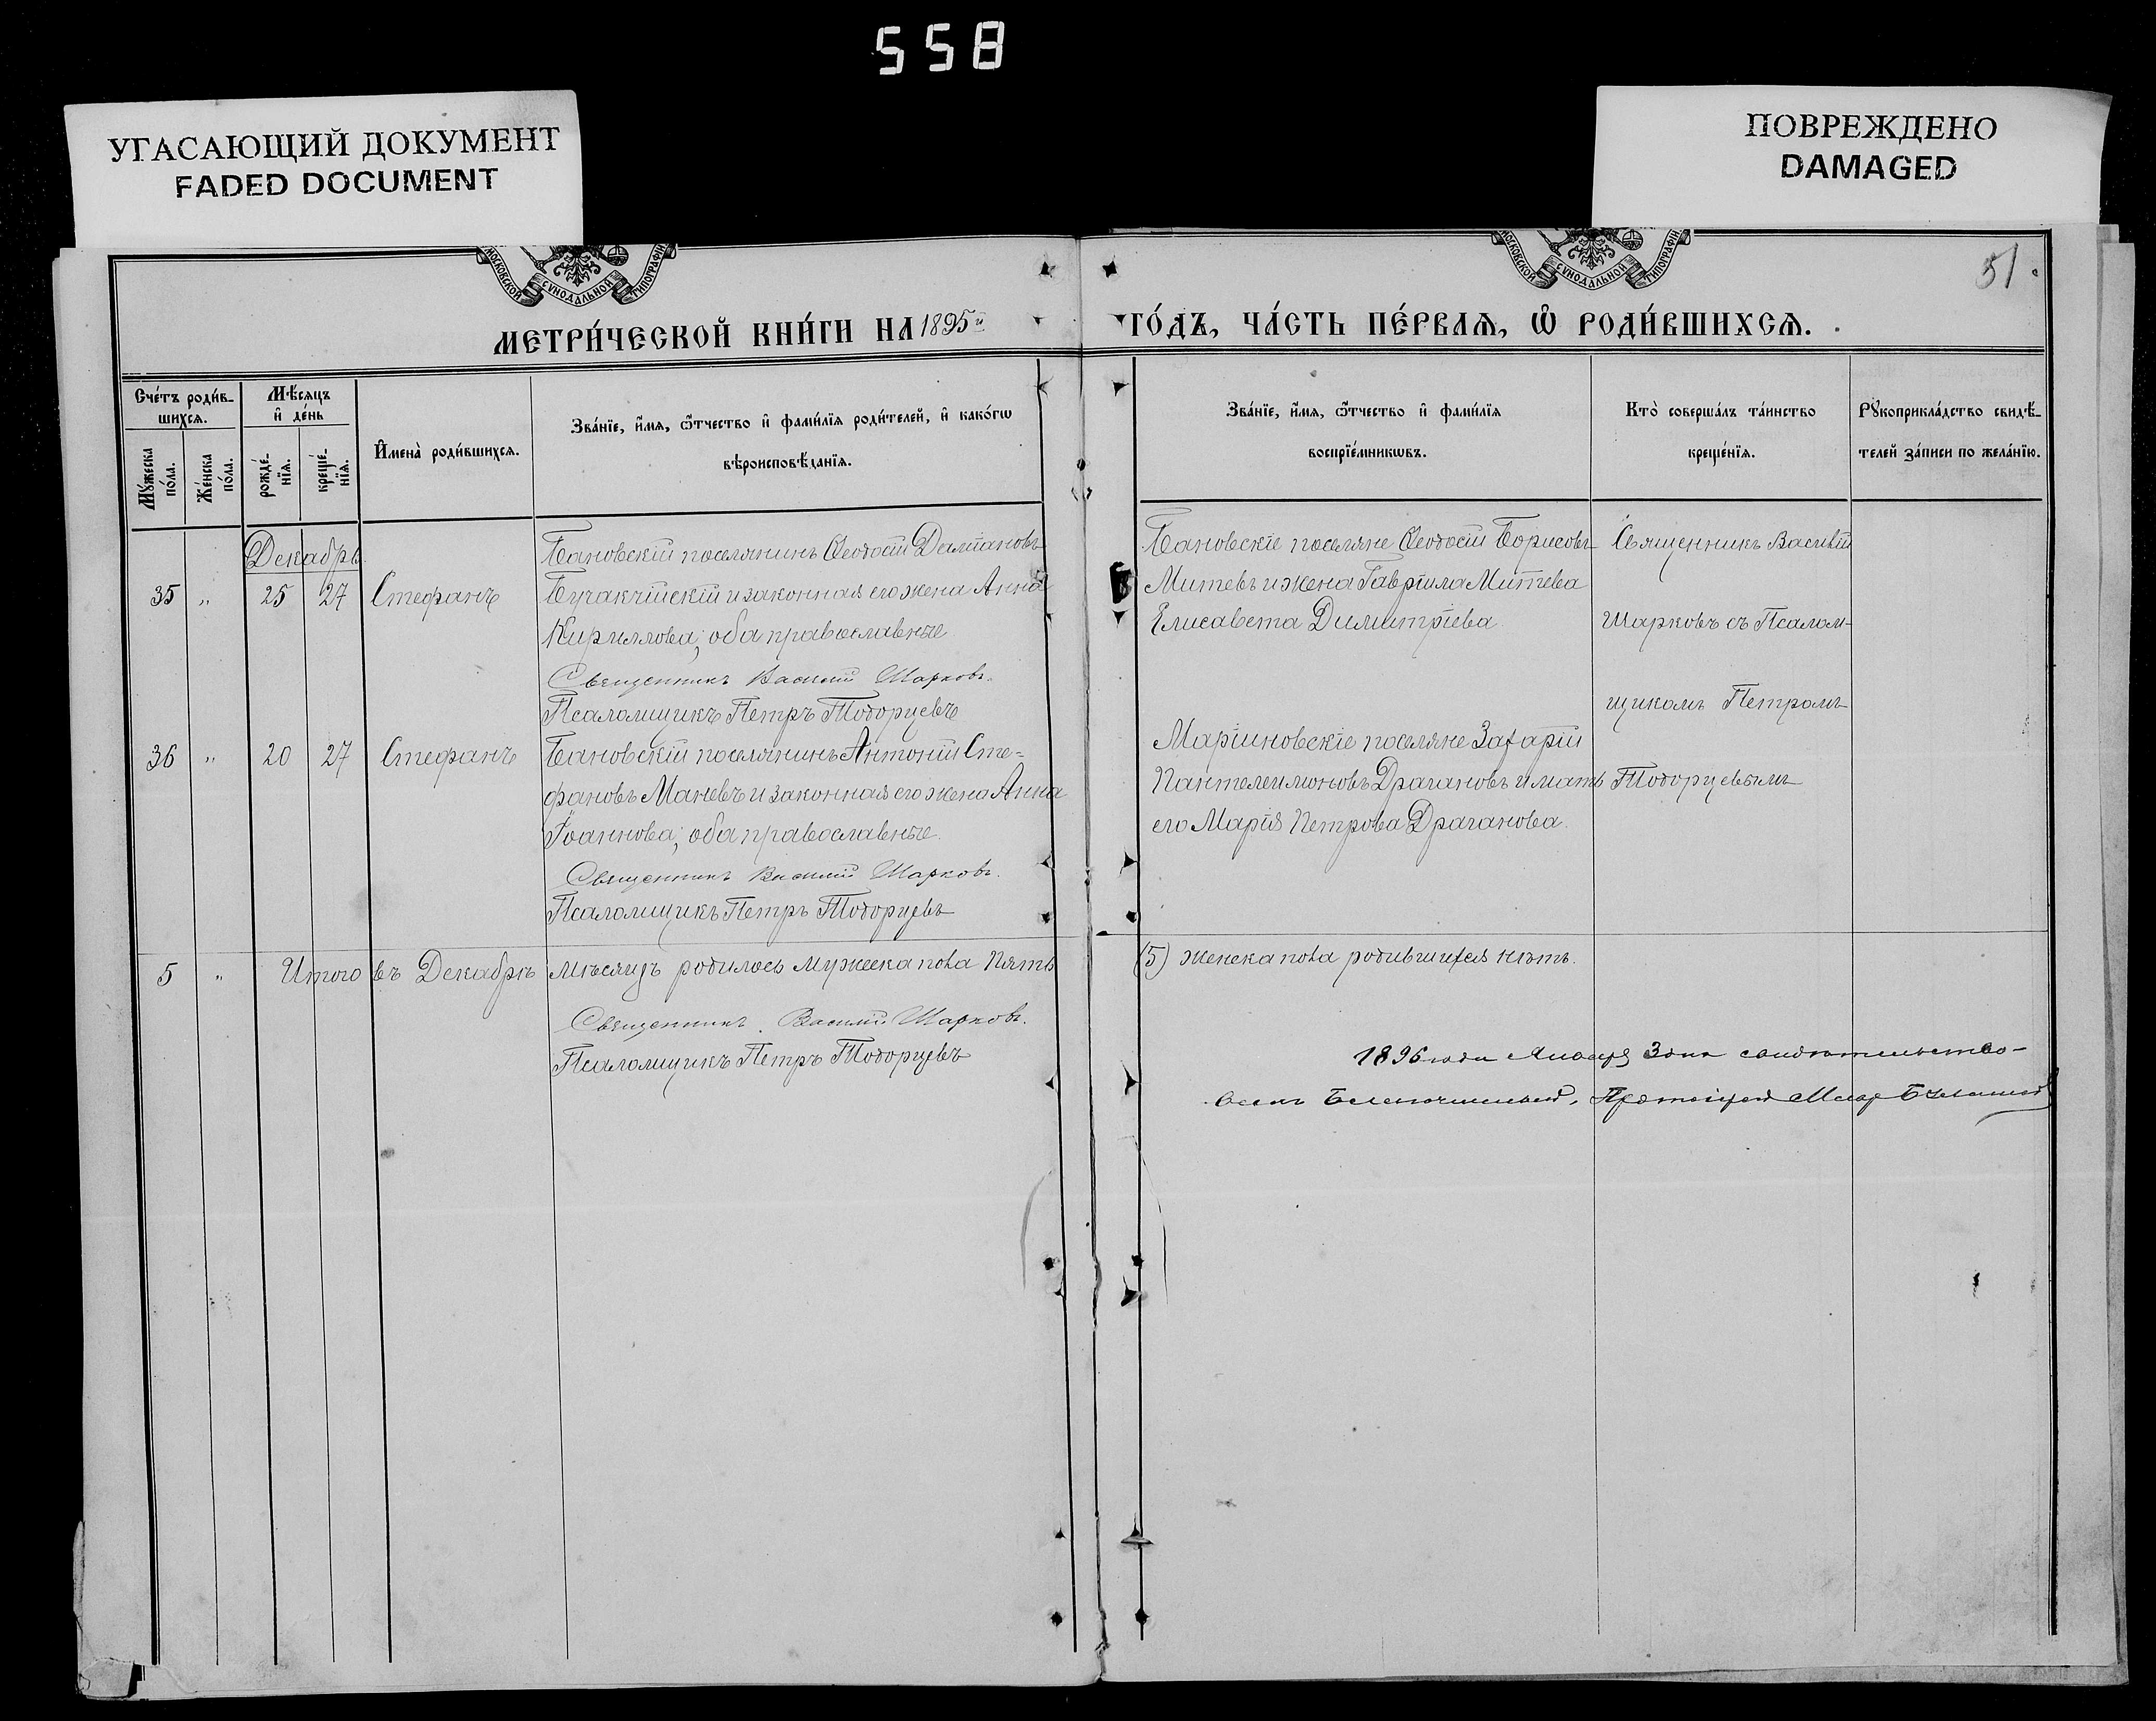 558
УГАСАЮЩИЙ ДОКУМЕНТ
FADED DOCUMENT
ПОВРЕЖДЕНО
DAMAGED
МОСКОВСКОЙ СѴНОДАЛЬНОЙ ТИПОГРАФІИ
МОСКОВСКОЙ СѴНОДАЛЬНОЙ ТИПОГРАФІИ
51.
МЕТРИ́ЧЕСКОЙ КНИ́ГИ НА 1895й
ГО́ДЪ, ЧА́СТЬ ПЕ́РВАѦ, Ѡ҆ РОДИ́ВШИХСѦ.
Сче́тъ роди́в-
шихсѧ.
Мꙋ́жеска по́ла.
Же́нска по́ла.
Мѣ́сѧцъ
и҆ де́нь
рожде́-нїѧ.
креще́-нїѧ.
И҆мена̀ роди́вшихсѧ.
Зва́нїе, и҆́мѧ, ѻ҆́тчество и҆ фами́лїѧ роди́телей, и҆ како́гѡ
вѣроисповѣ́данїѧ.
Зва́нїе, и҆́мѧ, ѻ҆́тчество и҆ фами́лїѧ
воспрїе́мникѡвъ.
Кто̀ соверша́лъ та́инство
креще́нїѧ.
Рꙋкоприкла́дство свидѣ́-
телей за́писи по жела́нїю.
Декабрь
35 " 25 27 Стефанъ
Бановскій поселянинъ Ѳеодосій Даміановъ
Бучакчійскій и законная его жена Анна
Кириллова; оба православные
Священникъ Василій Шарковъ.
Псаломщикъ Петръ Тодорцевъ
Бановскіе поселяне Ѳеодосій Борисовъ
Митевъ и жена Гавріила Митева
Елисавета Димитріева.
Священникъ Василій
Шарковъ съ Псалом-
щикомъ Петромъ
Тодорцевымъ
36 " 20 27 Стефанъ
Бановскій поселянинъ Антоній Сте-
фановъ Маневъ и законная его жена Анна
Іоаннова; оба православные.
Священникъ Василій Шарковъ.
Псаломщикъ Петръ Тодорцевъ
Маріиновскіе поселяне Захарій
Пантелеимоновъ Драгановъ и мать
его Марія Петрова Драганова.
5 " Итого въ Декабрѣ мѣсяцѣ родилось мужеска пола пять
(5) женска пола родившихся нѣтъ.
Священникъ Василій Шарковъ.
Псаломщикъ Петръ Тодорцевъ
1896 года Января 3 дня свидѣтельство-
валъ Благочинный, Протоіерей